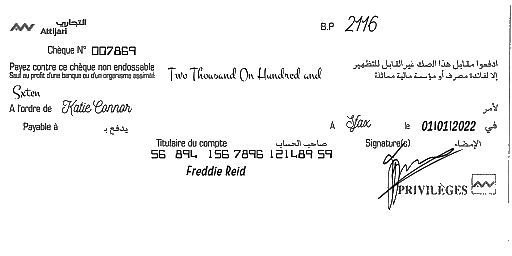 التجاري
Attijari
B.P 2116
Chèque N° 007869
Payez contre ce chèque non endossable
Sauf au profit d'une banque ou d'un organisme assimilé
Two Thousand On Hundred and
ادفعوا مقابل هذا الصك غير القابل للتظهير
إلا لفائدة مصرف أو مؤسسة مالية مماثلة
Sxten
A l'ordre de Katie Connor
لأمر
Payable à
يدفع بـ
A Sfax le 01/01/2022 في
Titulaire du compte صاحب الحساب
Signature(s) الإمضاء
56 894 156 7896 121489 59
Freddie Reid
PRIVILÈGES